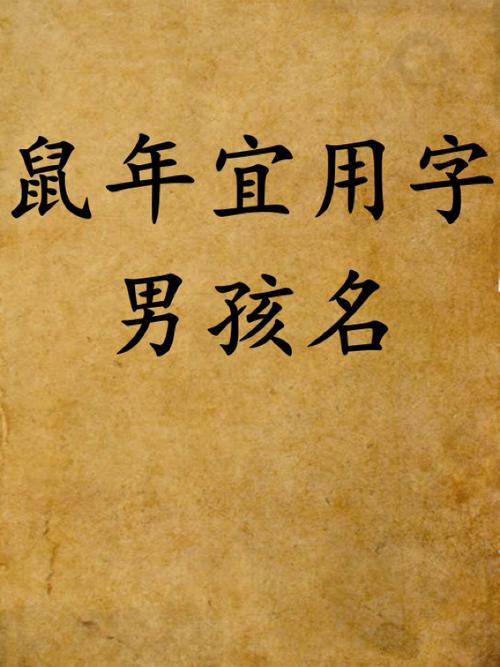 鼠年宜用字
男孩名